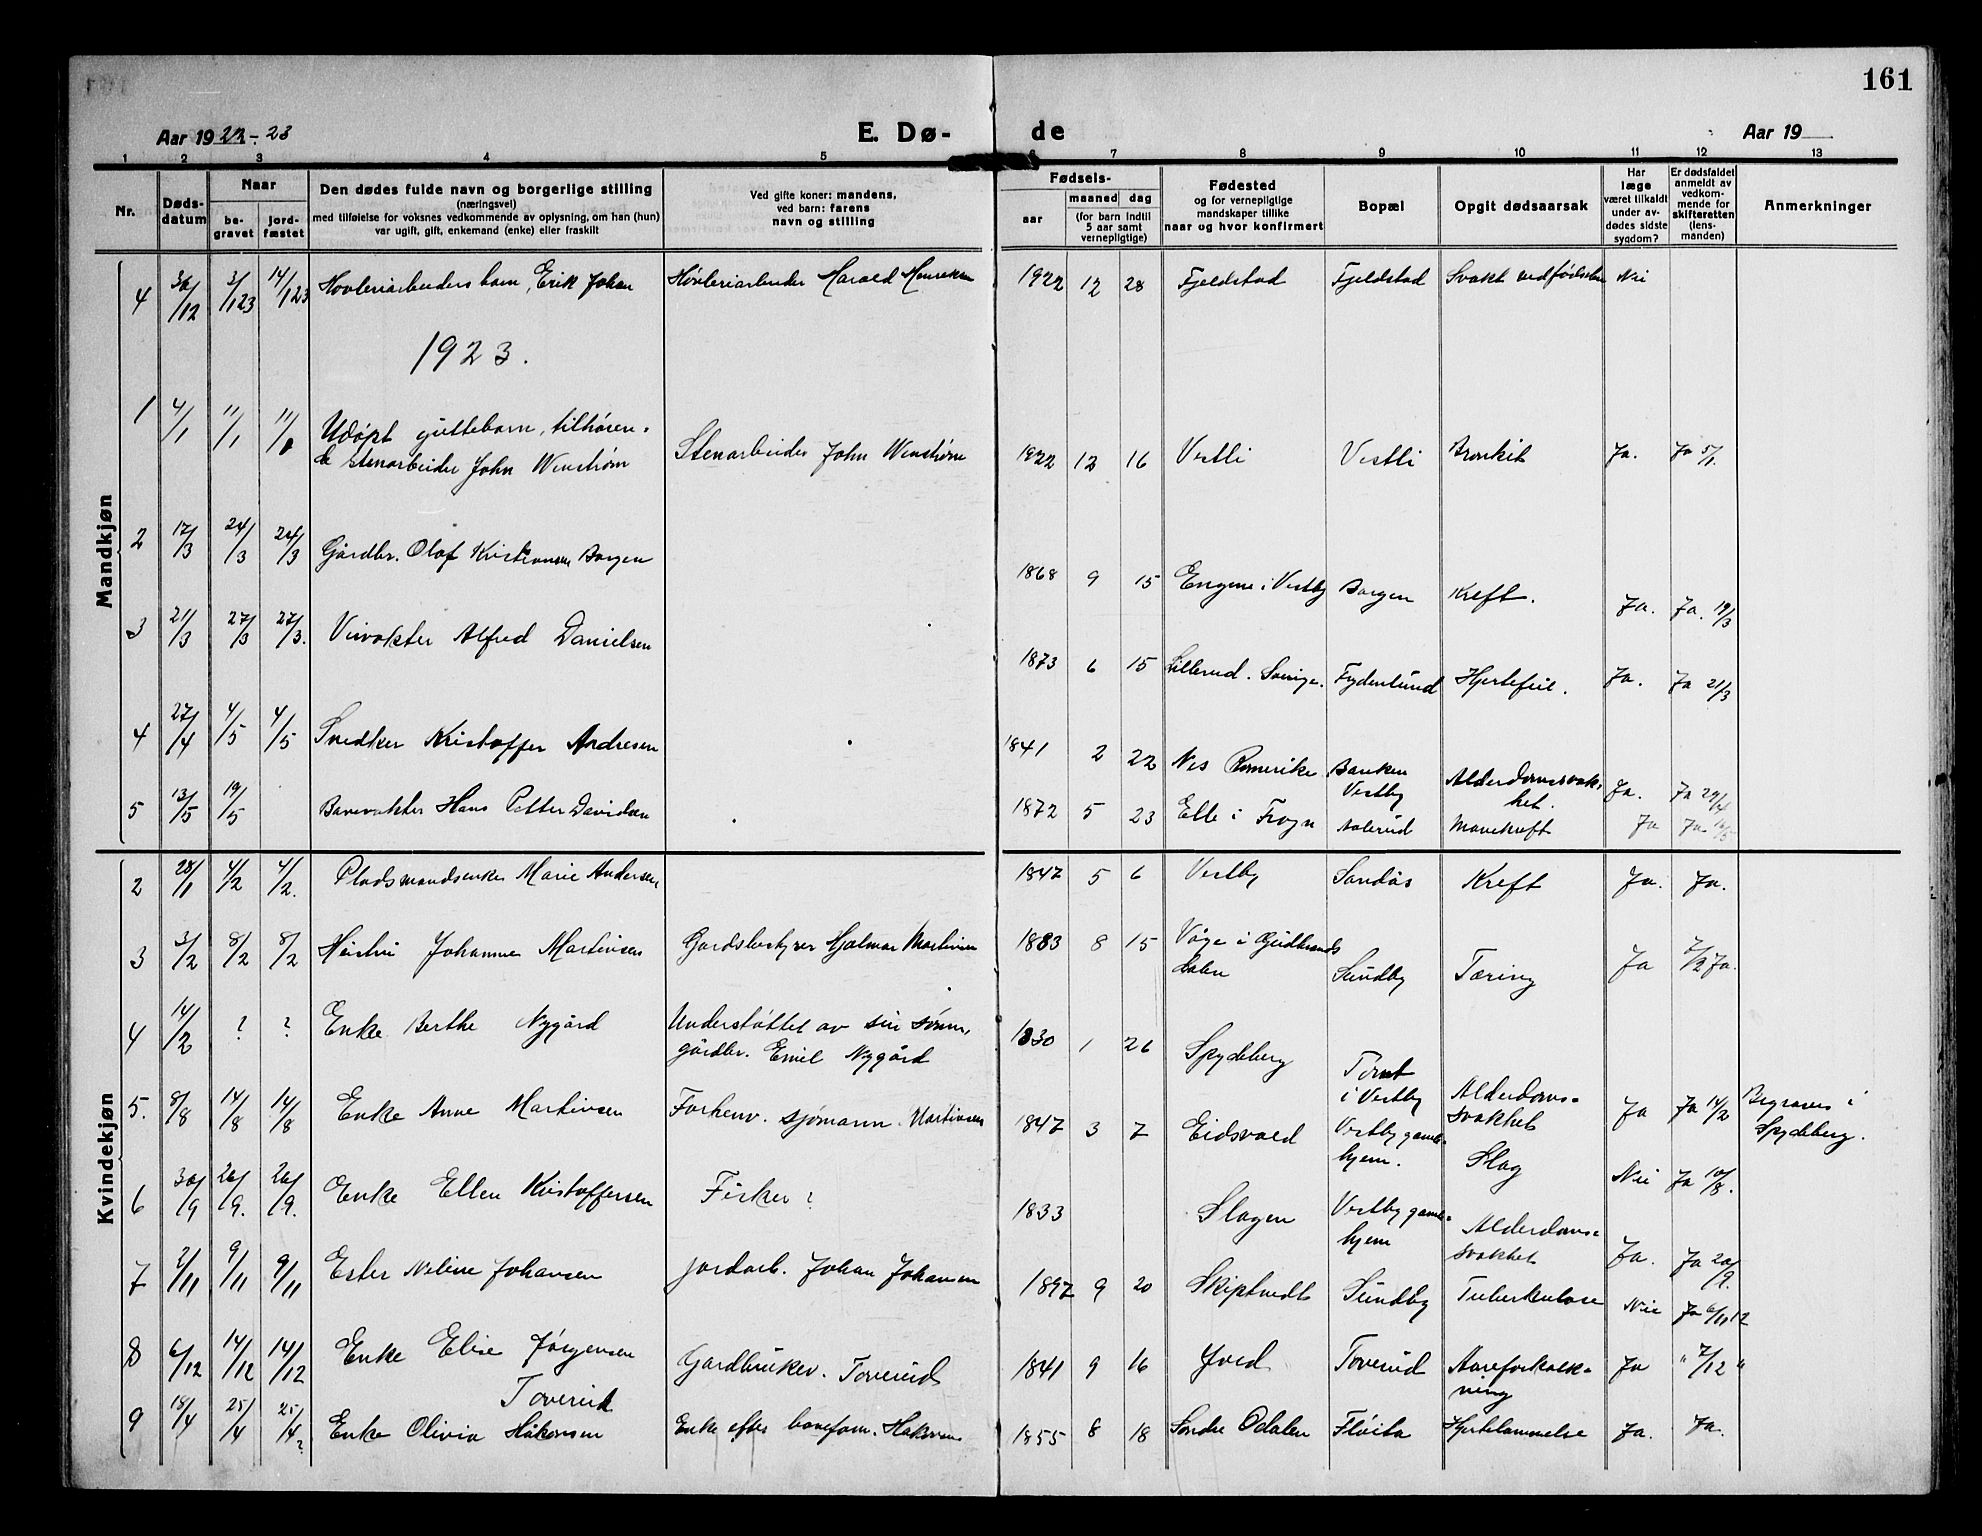 161
Aar 1922-23
E. Dø-
de
Aar 19
1 2 3 4 5 6 7 8 9 10 11 12 13
Nr.
Døds-
datum
Naar
be-
gravet
jord-
fæstet
Den dødes fulde navn og borgerlige stilling
(næringsvei)
med tilføielse for voksnes vedkommende av oplysning, om han (hun)
var ugift, gift, enkemand (enke) eller fraskilt
Ved gifte koner: mandens,
ved barn: farens
navn og stilling
Fødsels-
aar
maaned dag
(for barn indtil
5 aar samt
vernepligtige)
Fødested
og for vernepligtige
mandskaper tillike
naar og hvor konfirmert
Bopæl
Opgit dødsaarsak
Har
læge
været tilkaldt
under av-
dødes sidste
sygdom?
Er dødsfaldet
anmeldt av
vedkom-
mende for
skifteretten
(lens-
manden)
Anmerkninger
Mandkjøn
4 30/12 3/1 23 14/1 23 Høvleriarbeiders barn, Erik Johan Høvleriarbeider Harald Henriksen 1922 12 28 Fjeldstad Fjeldstad Svakt ved fødselen Nei
1923.
1 4/1 11/1 11/1 Udøpt guttebarn, tilhøren-
de Stenarbeider John Wenstrøm Stenarbeider John Wenstrøm 1922 12 16 Vestli Vestli Bronkit Ja. Ja 5/1.
2 17/3 24/3 24/3 Gårdbr. Olaf Kristiansen Borgen 1868 9 15 Engene i Vestby Borgen Kreft. Ja. Ja. 19/3
3 21/3 27/3 27/3. Veivokter Alfred Danielsen 1873 6 15 Lillerud. Sverige. Frydenlund Hjertefeil. Ja. Ja 21/3
4 27/4 4/5 4/5 Snedker Kristoffer Andresen 1841 2 22 Nes Romerike Banken
Vestby Alderdomssvak-
het. Ja. Ja 29/4
5 13/5 19/5 Banevokter Hans Petter Davidsen 1872 5 23 Elle i Frogn Aalerud Mavekreft Ja Ja
Kvindekjøn
2 28/1 4/2 4/2. Pladsmandsenke Marie Andersen 1847 5 6 Vestby Sandås Kreft Ja. Ja.
3 3/2 8/2 8/2 Hustru Johanne Martinsen Gardsbestyrer Hjalmar Martinsen 1883 8 15 Våge i Gudbrands
dalen Sundby Tæring Ja 7/2 Ja.
4 14/2 ? ? Enke Berthe Nygård Understøttet av sin sønn,
gårdbr. Emil Nygård 1830 1 26 Spydeberg Tomt
i Vestby Alderdoms-
svakhet Ja Ja 14/2 Begraves i
Spydeberg.
5. 8/8 14/8 14/8 Enke Anne Martinsen Forhenv. sjømann. Martinsen 1847 3 7 Eidsvold Vestby gamle-
hjem. Slag Nei Ja 10/8.
6 30/9 26/9. 26/9. Enke Ellen Kristoffersen Fisker? 1833 Slagen Vestby gamle-
hjem Alderdoms-
svakhet Ja. Ja 20/9.
7 2/11 9/11 9/11 Ester Neline Johansen jordarb. Johan Johansen 1897 9 20 Skiptvedt Sundby Tuberkulose Nei Ja 6/11
8 6/12 14/12 14/12 Enke Elise Jørgensen
Toverud Gardbruker. Toverud 1841 9 16 Toverud Aareforkalk-
ning Ja " 7/12 "
9 18/4 25/4 25/4? Enke Olivia Håkonsen Enke efter baneform. Håkonsen 1855 8 18 Søndre Odalen Fløita Hjertelammelse Ja. Ja.